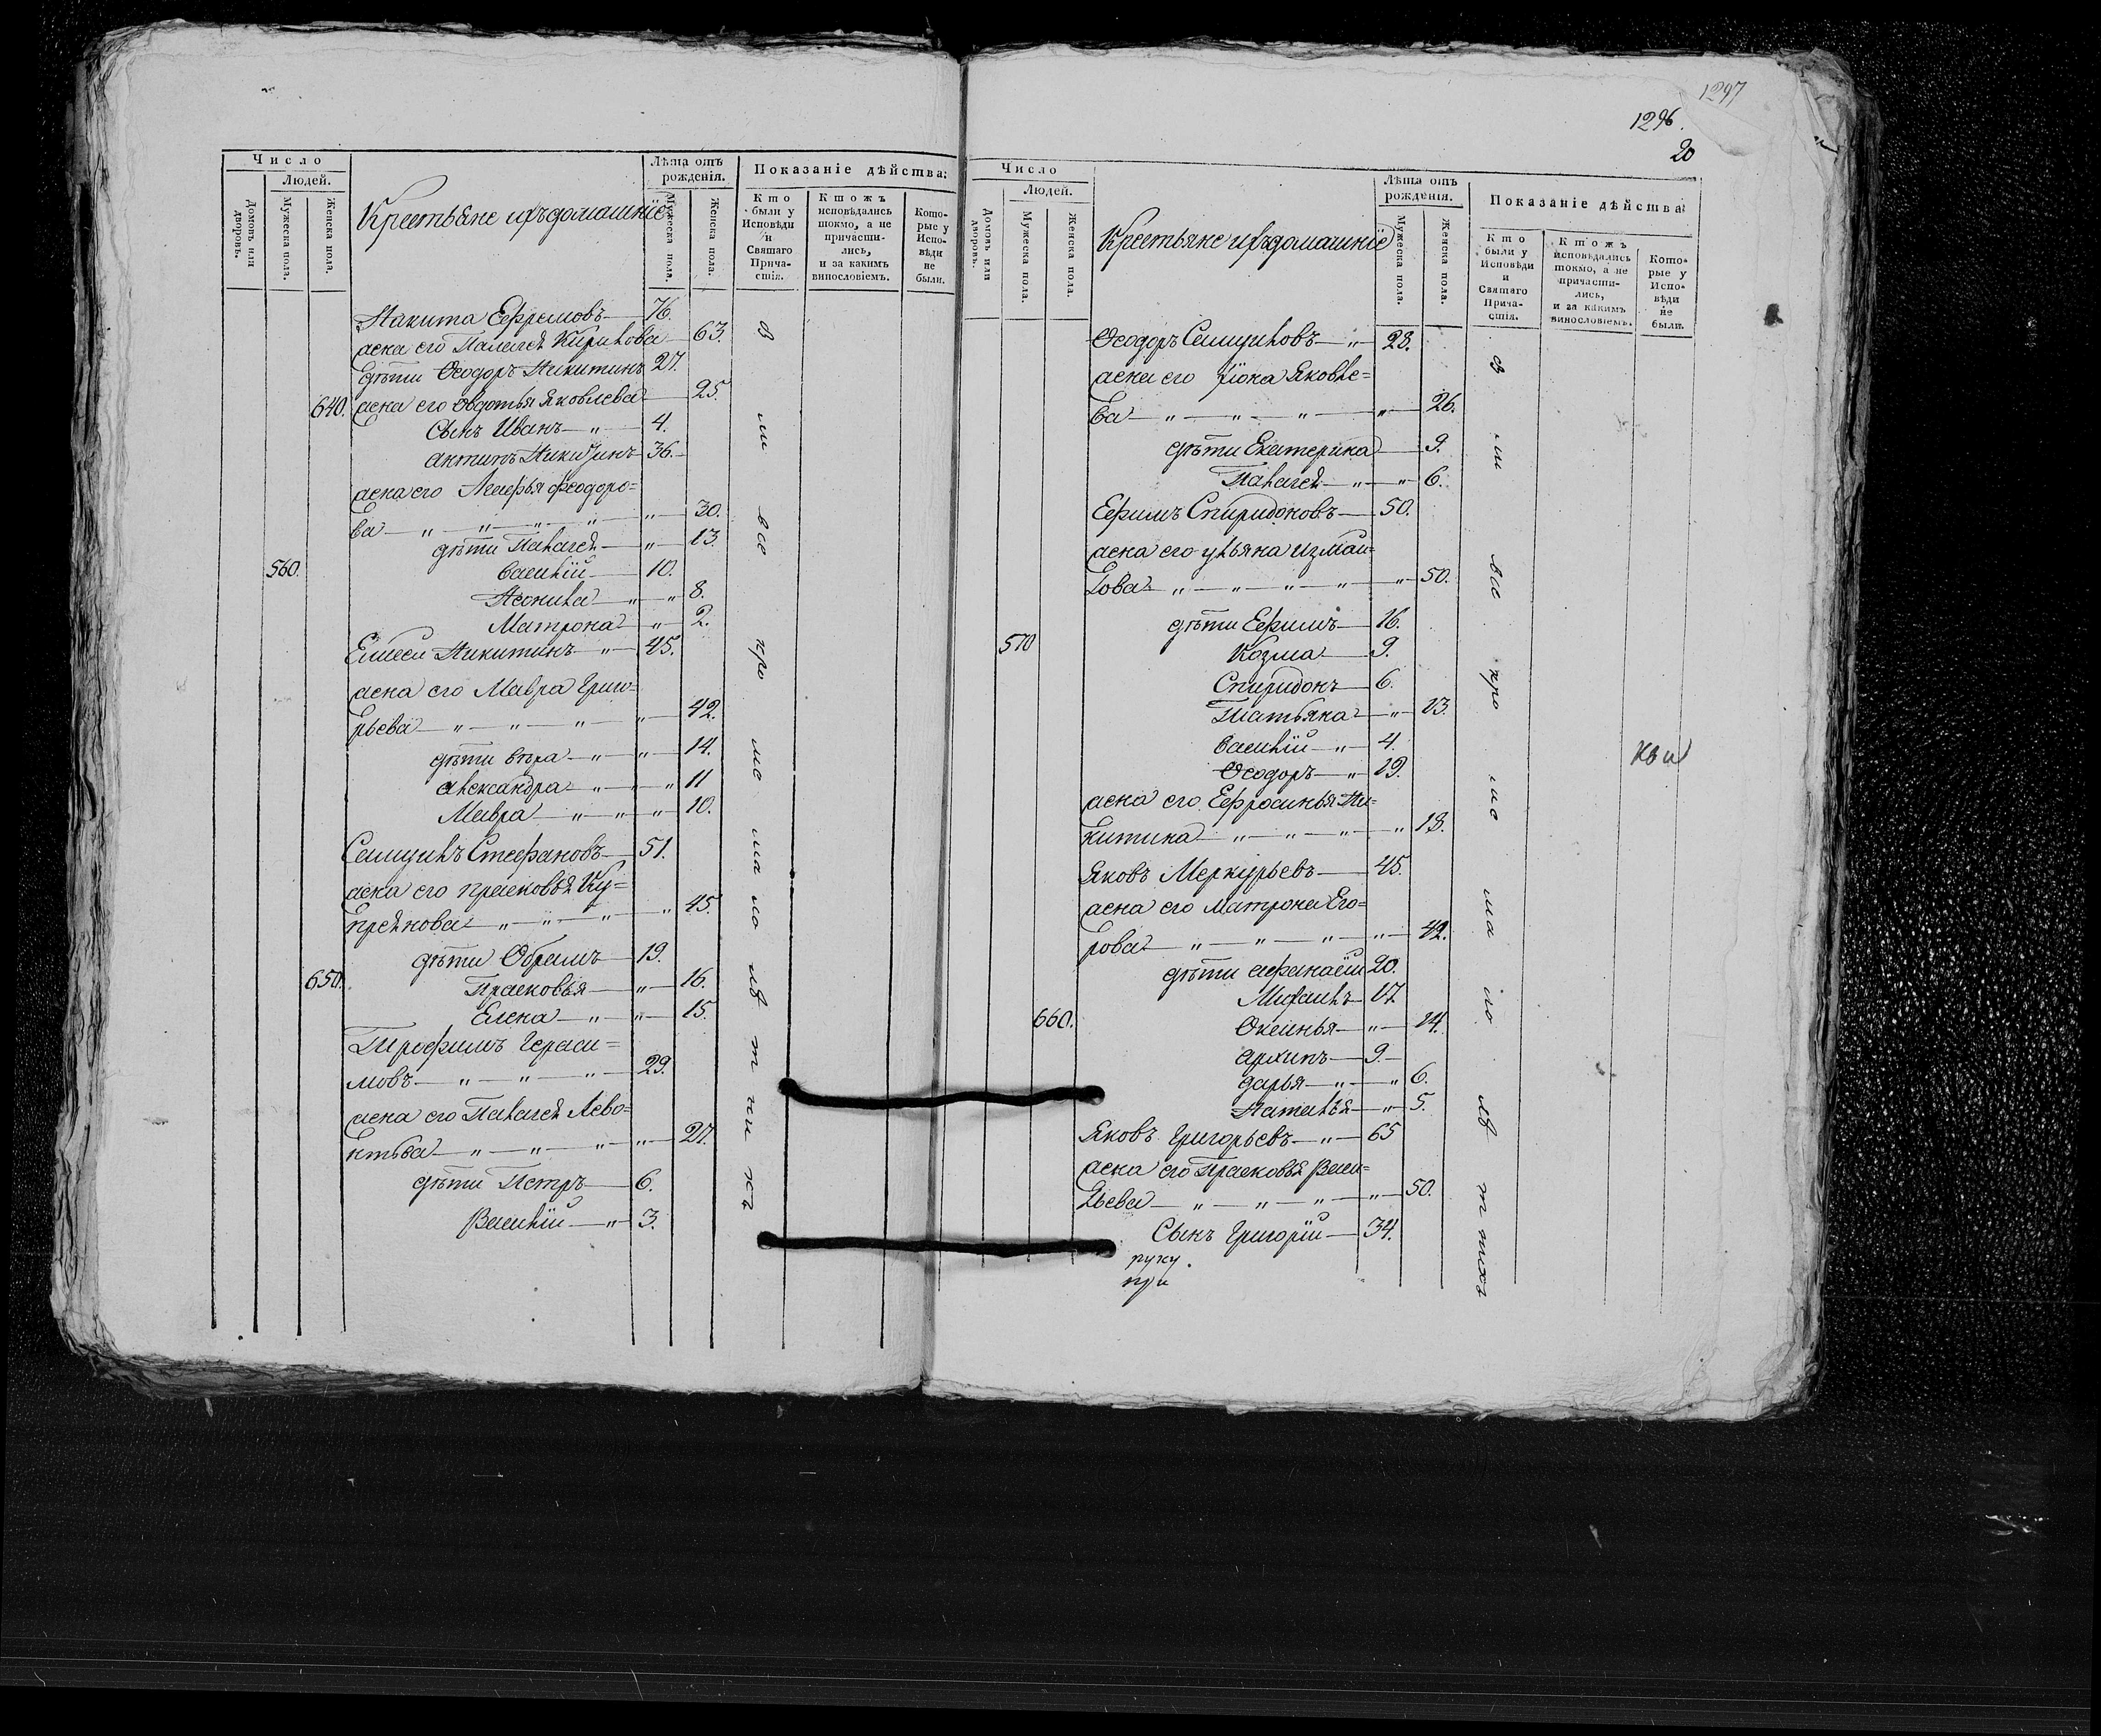 1297
1296.
20
Число
Людей.
Домовъ или дворовъ.
Мужеска пола.
Женска пола.
Крестьяне ихъ домашніе
Лѣта отъ рожденія.
Мужеска пола.
Женска пола.
Показаніе дѣйства:
Кто были у Исповѣди и Святаго Прича-стія.
Ктожъ исповѣдались токмо, а не причасти-лись, и за какимъ винословіемъ.
Кото-рые у Испо-вѣди не были.
Никита Ефремовъ 76.
жена его Палагея Кирилова 63.
дѣти Ѳеодоръ Никитинъ 27.
640. жена его Овдотья Яковлева 25.
Сынъ Иванъ 4.
Антипъ Никитинъ 36.
жена его Агафья Феодоро=
ва 30.
дѣти Палагея 13.
560. Василій 10.
Леонила 8.
Матрона 2.
Елисеи Никитинъ 45.
жена его Мавра Григо=
рьева 42.
дѣти Вѣра 14.
Александра 11
Мавра 10.
Самуилъ Стефановъ 51.
жена его Прасковья Ку=
преянова 45.
дѣти Обрамъ 19.
650. Прасковья 16.
Елена 15.
Трофимъ Гераси=
мовъ 29.
жена его Палагея Лево=
нтьва 27.
дѣти Петръ 6.
Василій 3.
Число
Людей.
Домовъ или дворовъ.
Мужеска пола.
Женска пола.
Крестьяне ихъ домашніе
Лѣта отъ рожденія.
Мужеска пола.
Женска пола.
Показаніе дѣйства:
Кто были у Исповѣди и Святаго Прича-стія.
Ктожъ исповѣдались токмо, а не причасти-лись, и за какимъ винословіемъ.
Кото-рые у Испо-вѣди не были.
Ѳеодоръ Самуиловъ 28.
жена его Яковле=
ва 26.
дѣти Екатерина 9.
Палагея 6.
Ефимъ Спиридоновъ 50.
жена его Ульяна Измаи=
лова 50.
дѣти Ефимъ 16.
570 Козма 9.
Спиридонъ 6.
Татьяна 13.
Василій 4.
Ѳеодоръ 19.
жена его Ефросинья Ни=
китина 18.
Яковъ Меркурьевъ 45.
жена его Матрона Его=
рова 42.
дѣти Афанасіи 20.
Михаилъ 17
660. Оксинья 14.
Архипъ 9.
Дарья 6.
Наталья 5.
Яковъ Григорьевъ 65
жена его Прасковья Васи=
льева 50.
Сынъ Григоріи 34.
руку
при